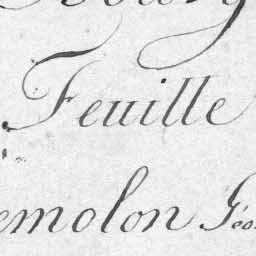 Feuille
emolon Géo